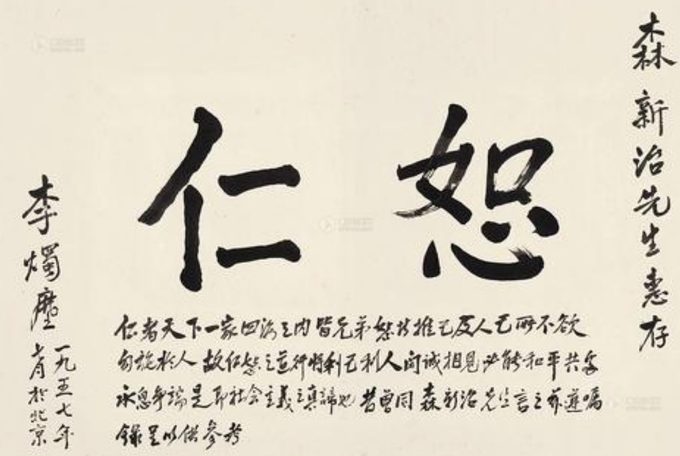 森新治先生惠存
仁恕
仁者天下一家四海之内皆兄弟恕者推己及人己所不欲
勿施於人故仁恕之道行将利己利人開诚相見必能和平共處
永息爭端是即社会主義之真諦也昔曾同森新治先生言之兹遵嘱
錄呈以供參考
李燭塵
一九五七年
月於北京